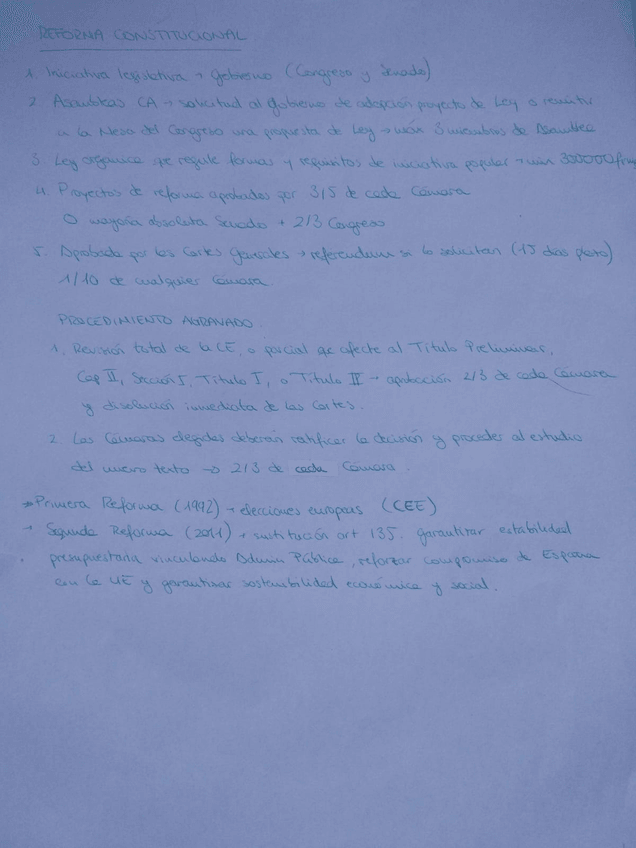 REFORMA CONSTITUCIONAL
1. Iniciativa legislativa → Gobierno (Congreso y Senado)
2. Asambleas CA → solicitud al gobierno de adopción proyecto de Ley o remitir
a la Mesa del Congreso una propuesta de Ley → máx 3 miembros de Asamblea
3. Ley orgánica que regule formas y requisitos de iniciativa popular → mín 500000 firm
4. Proyectos de reforma aprobados por 3/5 de cada Cámara
O mayoría absoluta Senado + 2/3 Congreso
5. Aprobada por las Cortes Generales → referendum si lo solicitan (15 días plazo)
1/10 de cualquier Cámara.
PROCEDIMIENTO AGRAVADO.
1. Revisión total de la CE, o parcial qe afecte al Título Preliminar,
Cap II, Sección I, Título I, o Título II → aprobación 2/3 de cada Cámara
y disolución inmediata de las Cortes.
2. Las Cámaras elegidas deberán ratificar la decisión y proceder al estudio
del nuevo texto → 2/3 de cada Cámara.
→ Primera Reforma (1992) → elecciones europeas (CEE)
→ Segunda Reforma (2011) → sustitución art 135. garantizar estabilidad
presupuestaria vinculando Admin Pública, reforzar compromiso de España
con la UE y garantizar sostenibilidad económica y social.